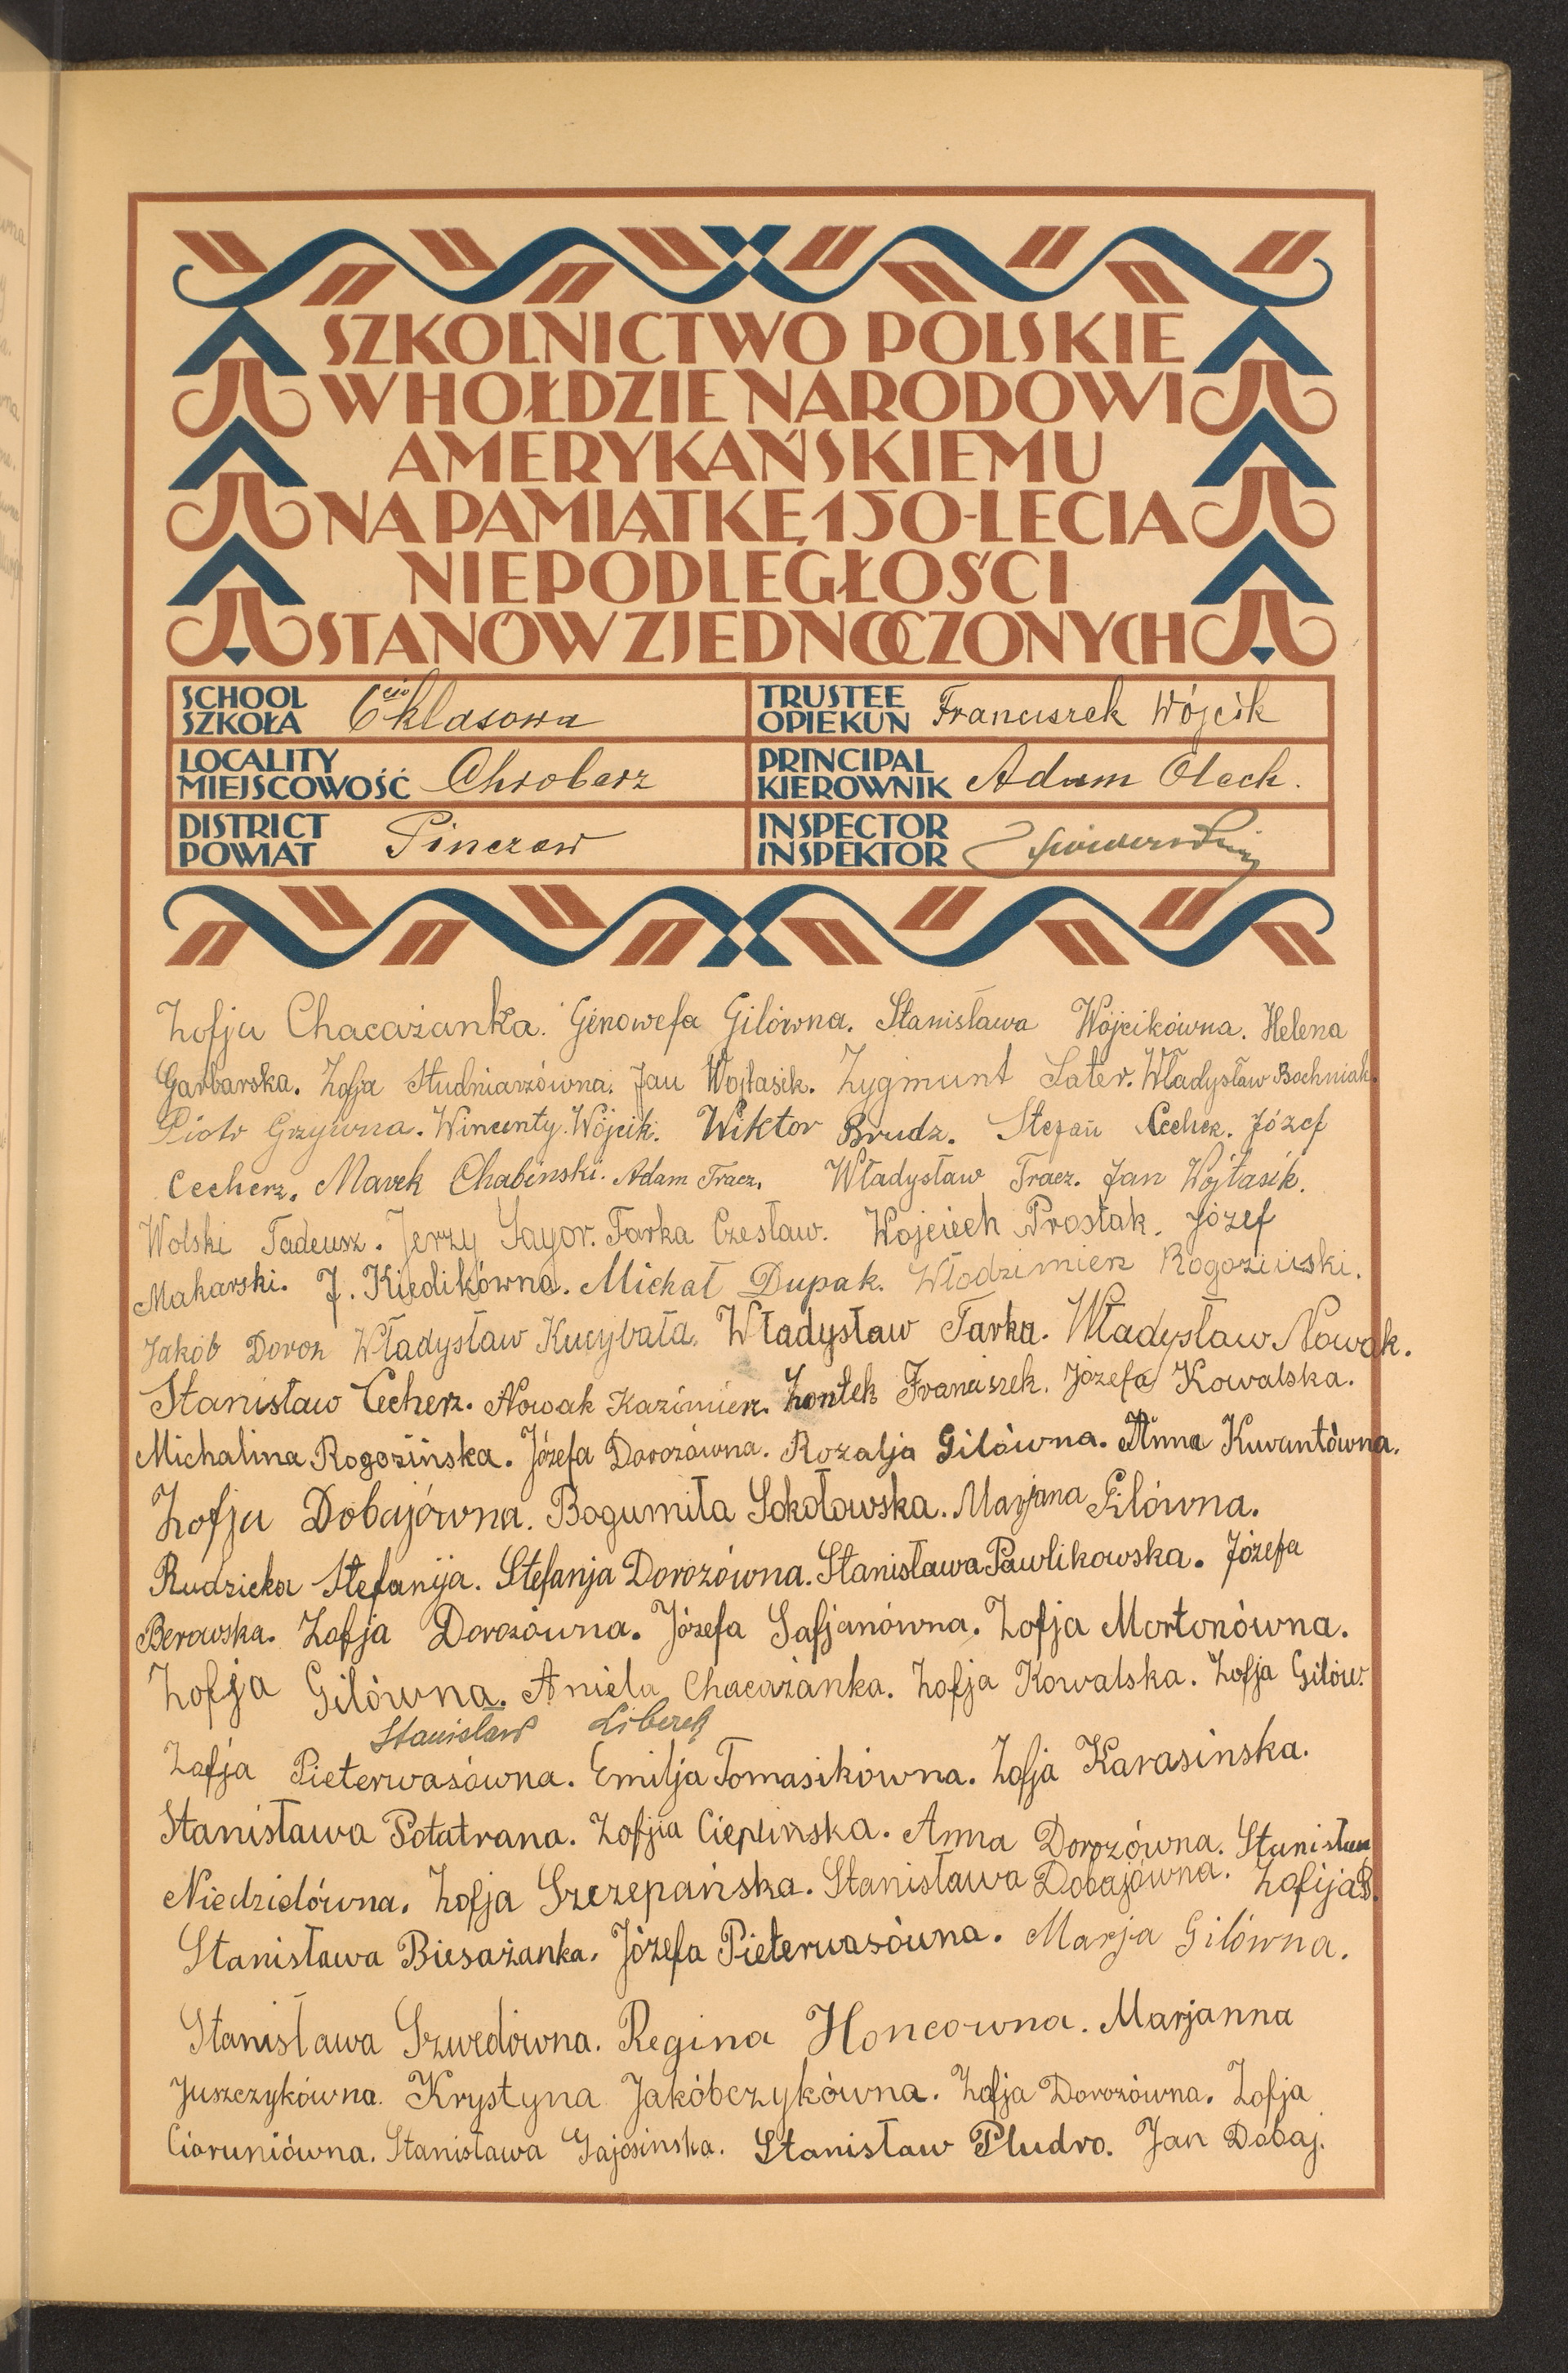 SZKOLNICTWO POLSKIE
W HOŁDZIE NARODOWI
AMERYKAŃSKIEMU
NA PAMIĄTKĘ 150-LECIA
NIEPODLEGŁOŚCI
STANÓW ZJEDNOCZONYCH
SCHOOL
SZKOŁA 6cio klasowa
TRUSTEE
OPIEKUN Franciszek Wójcik
LOCALITY
MIEJSCOWOŚĆ Chroberz
PRINCIPAL
KIEROWNIK Adam Olech.
DISTRICT
POWIAT Pinczow
INSPECTOR
INSPEKTOR
Zofja Chacażanka. Genowefa Gilówna. Stanisława Wójcikówna. Helena
Garbarska. Zofja Studniarzówna. Jan Wojtasik. Zygmunt Sater. Władysław Bochniak.
Piotr Grzywna. Wincenty Wójcik. Wiktor Brudz. Stefan Cecherz. Józef
Cecherz. Marek Chabinski. Adam Tracz. Władysław Tracz. Jan Wojtasik.
Wolski Tadeusz. Jerzy Sayor. Tarka Czesław. Wojciech Prostak. Józef
Makarski. J. Kiedikówna. Michał Dupak. Włodzimierz Rogoziński.
Jakób Doroz Władysław Kucybała. Władysław Tarka. Władysław Nowak.
Stanisław Cecherz. Nowak Kazimierz. Zontek Franciszek. Józefa Kowalska.
Michalina Rogozińska. Józefa Dorozówna. Rozalja Gilówna. Anna Kuwantówna.
Zofja Dobajówna. Bogumiła Sokołowska. Marjana Gilówna.
Rudzicka Stefanija. Stefanja Dorozówna. Stanisława Pawlikowska. Józefa
Berowska. Zofja Dorozówna. Józefa Safjanówna. Zofja Mortonówna.
Zofja Gilówna. Aniela Chacażanka. Zofja Kowalska. Zofja Gilów.
Stanisław Liberek
Zofja Pieterwasówna. Emilja Tomasikówna. Zofja Karasinska.
Stanisława Potatrana. Zofjia Cieplinska. Anna Dorozówna. Stanisław
Niedzielówna. Zofja Szczepańska. Stanisława Dobajówna. Zofija B.
Stanisława Biesażanka. Józefa Pieterwasówna. Marja Gilówna.
Stanisława Szwedówna. Regina Honcowna. Marjanna
Juszczykówna. Krystyna Jakóbczykówna. Zofja Dorozówna. Zofja
Cioruniówna. Stanisława Gajosinska. Stanisław Pludro. Jan Dobaj.